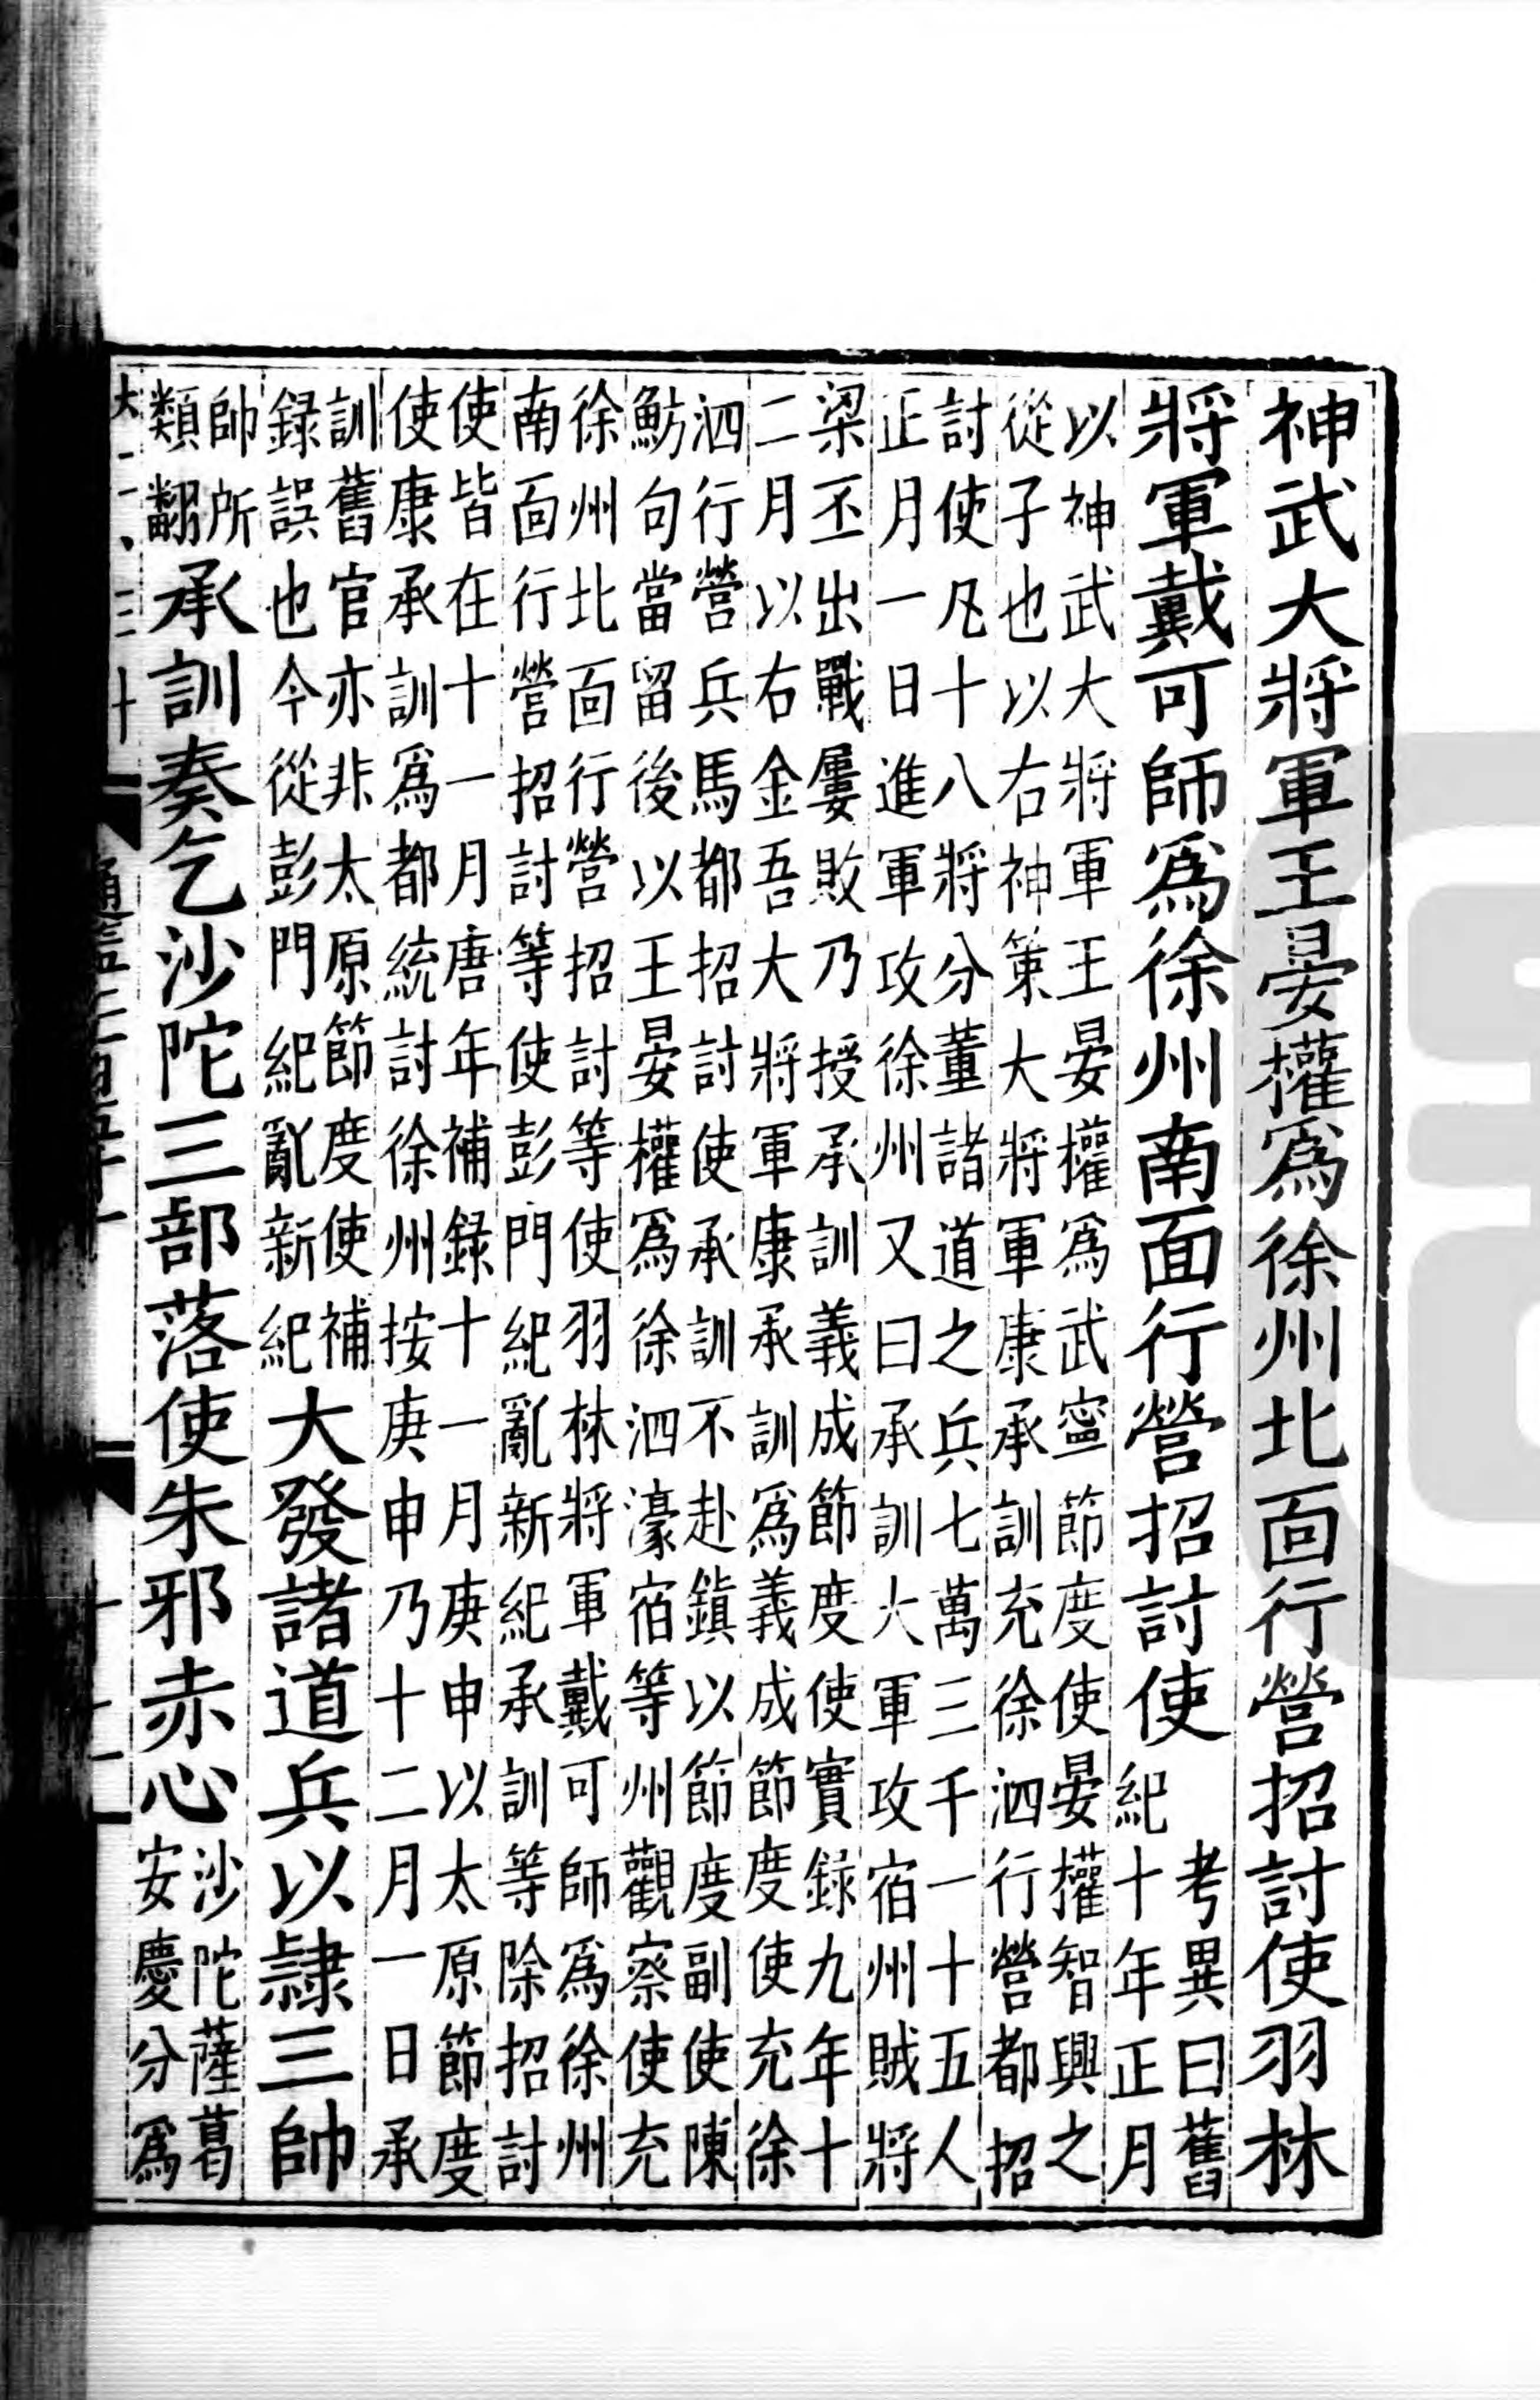 神武大將軍王晏權爲徐州北面行營招討使羽林
將軍戴可師爲徐州南面行營招討使考異曰舊
紀十年正月
以神武大將軍王晏權爲武寧節度使晏權智興之
從子也以右神策大將軍康承訓充徐泗行營都招
討使凡十八將分董諸道之兵七萬三千一十五人
正月一日進軍攻徐州又曰承訓大軍攻宿州賊將
梁丕出戰屢敗乃授承訓義成節度使實録九年十
二月以右金吾大將軍康承訓爲義成節度使充徐
泗行營兵馬都招討使承訓不赴鎮以節度副使陳
魴句當留後以王晏權爲徐泗濠宿等州觀察使充
徐州北面行營招討等使羽林將軍戴可師爲徐州
南面行營招討等使彭門紀亂新紀承訓等除招討
使皆在十一月唐年補録十一月庚申以太原節度
使康承訓爲都統討徐州按庚申乃十二月一日承
訓舊官亦非太原節度使補
録誤也今從彭門紀亂新紀大發諸道兵以隸三帥
帥所
類翻承訓奏乞沙陀三部落使朱邪赤心沙陀薩葛
安慶分爲